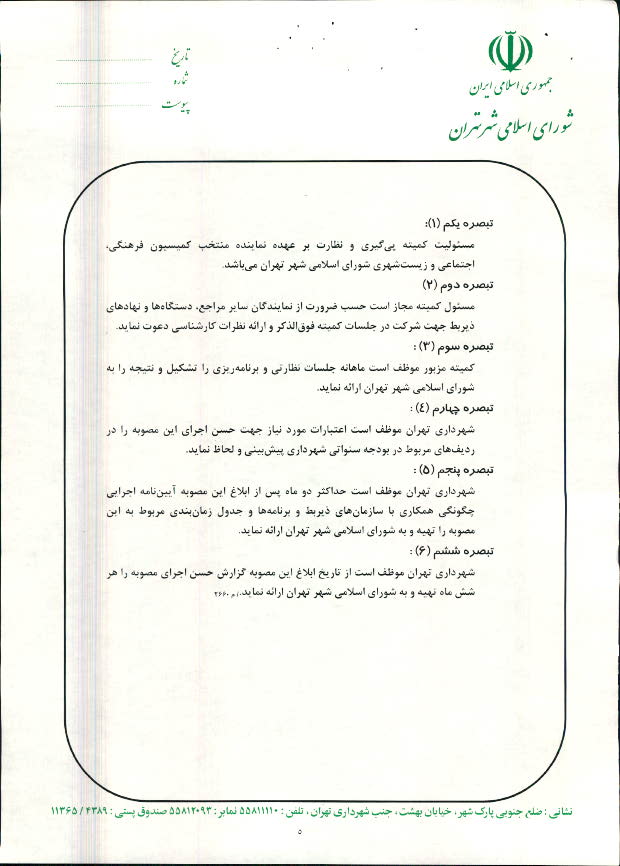 جمهوری اسلامی ایران
شورای اسلامی شهر تهران
تاریخ
شماره
پیوست
تبصره یکم (۱):
مسئولیت کمیته پی‌گیری و نظارت بر عهده نماینده منتخب کمیسیون فرهنگی،
اجتماعی و زیست‌شهری شورای اسلامی شهر تهران می‌باشد.
تبصره دوم (۲)
مسئول کمیته مجاز است حسب ضرورت از نمایندگان سایر مراجع، دستگاه‌ها و نهادهای
ذیربط جهت شرکت در جلسات کمیته فوق‌الذکر و ارائه نظرات کارشناسی دعوت نماید.
تبصره سوم (۳) :
کمیته مزبور موظف است ماهانه جلسات نظارتی و برنامه‌ریزی را تشکیل و نتیجه را به
شورای اسلامی شهر تهران ارائه نماید.
تبصره چهارم (٤) :
شهرداری تهران موظف است اعتبارات مورد نیاز جهت حسن اجرای این مصوبه را در
ردیف‌های مربوط در بودجه سنواتی شهرداری پیش‌بینی و لحاظ نماید.
تبصره پنجم (۵) :
شهرداری تهران موظف است حداکثر دو ماه پس از ابلاغ این مصوبه آیین‌نامه اجرایی
چگونگی همکاری با سازمان‌های ذیربط و برنامه‌ها و جدول زمان‌بندی مربوط به این
مصوبه را تهیه و به شورای اسلامی شهر تهران ارائه نماید.
تبصره ششم (۶) :
شهرداری تهران موظف است از تاریخ ابلاغ این مصوبه گزارش حسن اجرای مصوبه را هر
شش ماه تهیه و به شورای اسلامی شهر تهران ارائه نماید.
نشانی : ضلع جنوبی پارک شهر، خیابان بهشت، جنب شهرداری تهران ، تلفن : ۵۵۸۱۱۱۱۰ نمابر : ۵۵۸۱۲۰۹۳ صندوق پستی : ۴۳۸۹ / ۱۱۳۶۵
۵